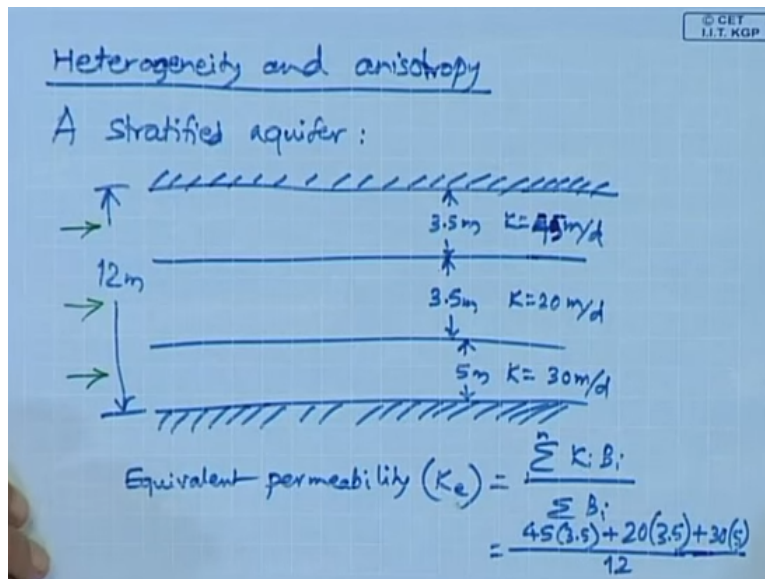 © CET
I.I.T. KGP
Heterogeneity and anisotropy
A stratified aquifer :
3.5m K=45m/d
12m
3.5m K=20m/d
5m K= 30m/d
Equivalent permeability (Ke) = n Σ Ki Bi / Σ Bi
= 45(3.5)+20(3.5)+30(5) / 12